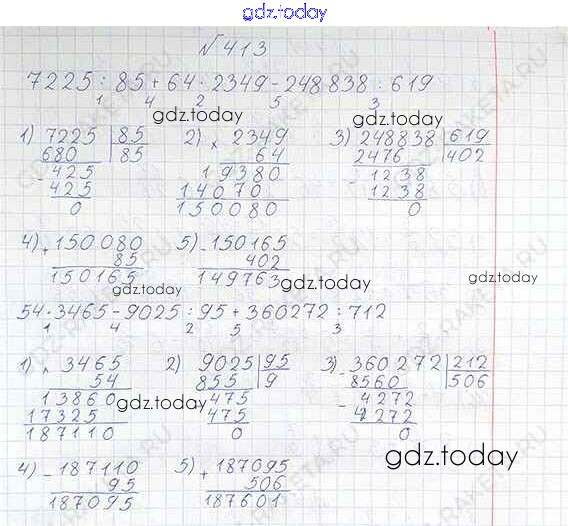 gdz.today
№ 413
7225 : 85 + 64 · 2349 - 248838 : 619
1 4 2 5 3
gdz.today
1) 7225 | 85 2) × 2349 3) 248838 | 619
680 | 85 64 2476 | 402
- 425 19380 - 1238
425 14070 1238
0 150080 0
4) + 150080 5) - 150165
85 402
150165 149763
gdz.today gdz.today gdz.today
54 · 3465 - 9025 : 95 + 360272 : 712
1 4 2 5 3
1) × 3465 2) 9025 | 95 3) - 360272 | 212
54 855 | 9 8560 | 506
13860 475 - 4272
17325 475 4272
187110 0 0
gdz.today
gdz.today
4) - 187110 5) + 187095
95 506
187095 187601
GDZ-RAKETA.RU